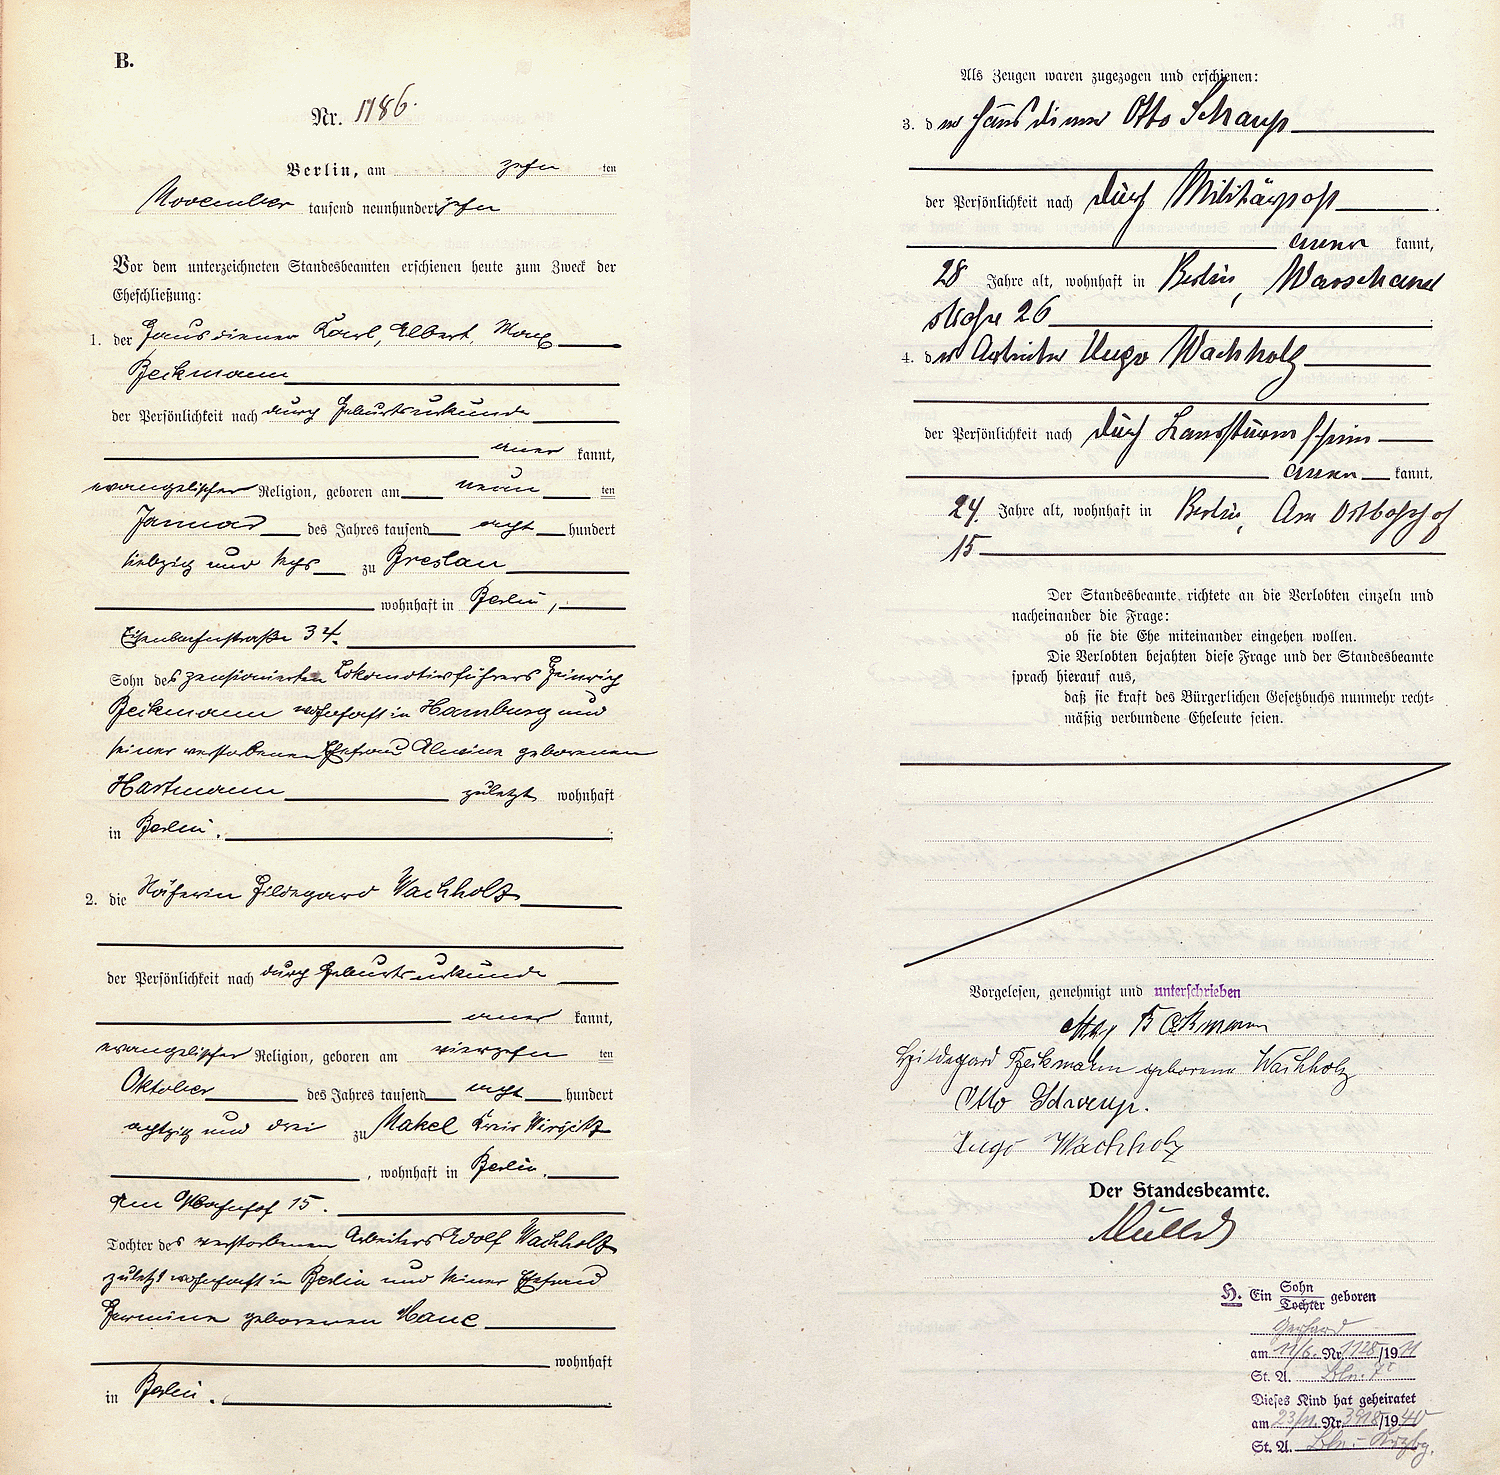 B.
Nr. 1186.
Berlin, am zehn ten
November tausend neunhundert zehn
Vor dem unterzeichneten Standesbeamten erschienen heute zum Zweck der
Eheschließung:
1. der Hausdiener Karl, Albert, Max
Beckmann
der Persönlichkeit nach durch Geburtsurkunde
aner kannt,
evangelischer Religion, geboren am neun ten
Januar des Jahres tausend acht hundert
siebzig und sechs zu Breslau
wohnhaft in Berlin,
Eisenbahnstraße 34.
Sohn des pensionierten Lokomotivführers Heinrich
Beckmann wohnhaft in Hamburg und
seiner verstorbenen Ehefrau Alwine geborenen
Hartmann zuletzt wohnhaft
in Berlin.
2. die Näherin Hildegard Wachholz
der Persönlichkeit nach durch Geburtsurkunde
aner kannt,
evangelischer Religion, geboren am vierzehn ten
Oktober des Jahres tausend acht hundert
achtzig und drei zu Nakel Kreis Wirsitz
, wohnhaft in Berlin,
Am Ostbahnhof 15.
Tochter des verstorbenen Arbeiters Adolf Wachholz
zuletzt wohnhaft in Berlin und seiner Ehefrau
Hermine geborenen
wohnhaft
in Berlin.
Als Zeugen waren zugezogen und erschienen:
3. der Hausdiener Otto Schaup
der Persönlichkeit nach durch Militärpaß
aner kannt,
28 Jahre alt, wohnhaft in Berlin, Warschauer
straße 26
4. der Arbeiter Hugo Wachholz
der Persönlichkeit nach durch Landsturmschein
aner kannt,
24. Jahre alt, wohnhaft in Berlin, Am Ostbahnhof
15
Der Standesbeamte richtete an die Verlobten einzeln und
nacheinander die Frage:
ob sie die Ehe miteinander eingehen wollen.
Die Verlobten bejahten diese Frage und der Standesbeamte
sprach hierauf aus,
daß sie kraft des Bürgerlichen Gesetzbuchs nunmehr recht-
mäßig verbundene Eheleute seien.
Vorgelesen, genehmigt und unterschrieben
Max Beckmann
Hildegard Beckmann geborene Wachholz
Otto Schaup.
Hugo Wachholz
Der Standesbeamte.
Müller
H. Ein Sohn
Tochter geboren
Gerhard
am 11/6. Nr. 1128/1911
St. A. Bln. 7c
Dieses Kind hat geheiratet
am 23/11. Nr. 3918/1940
St. A. Bln.-Krzbg.